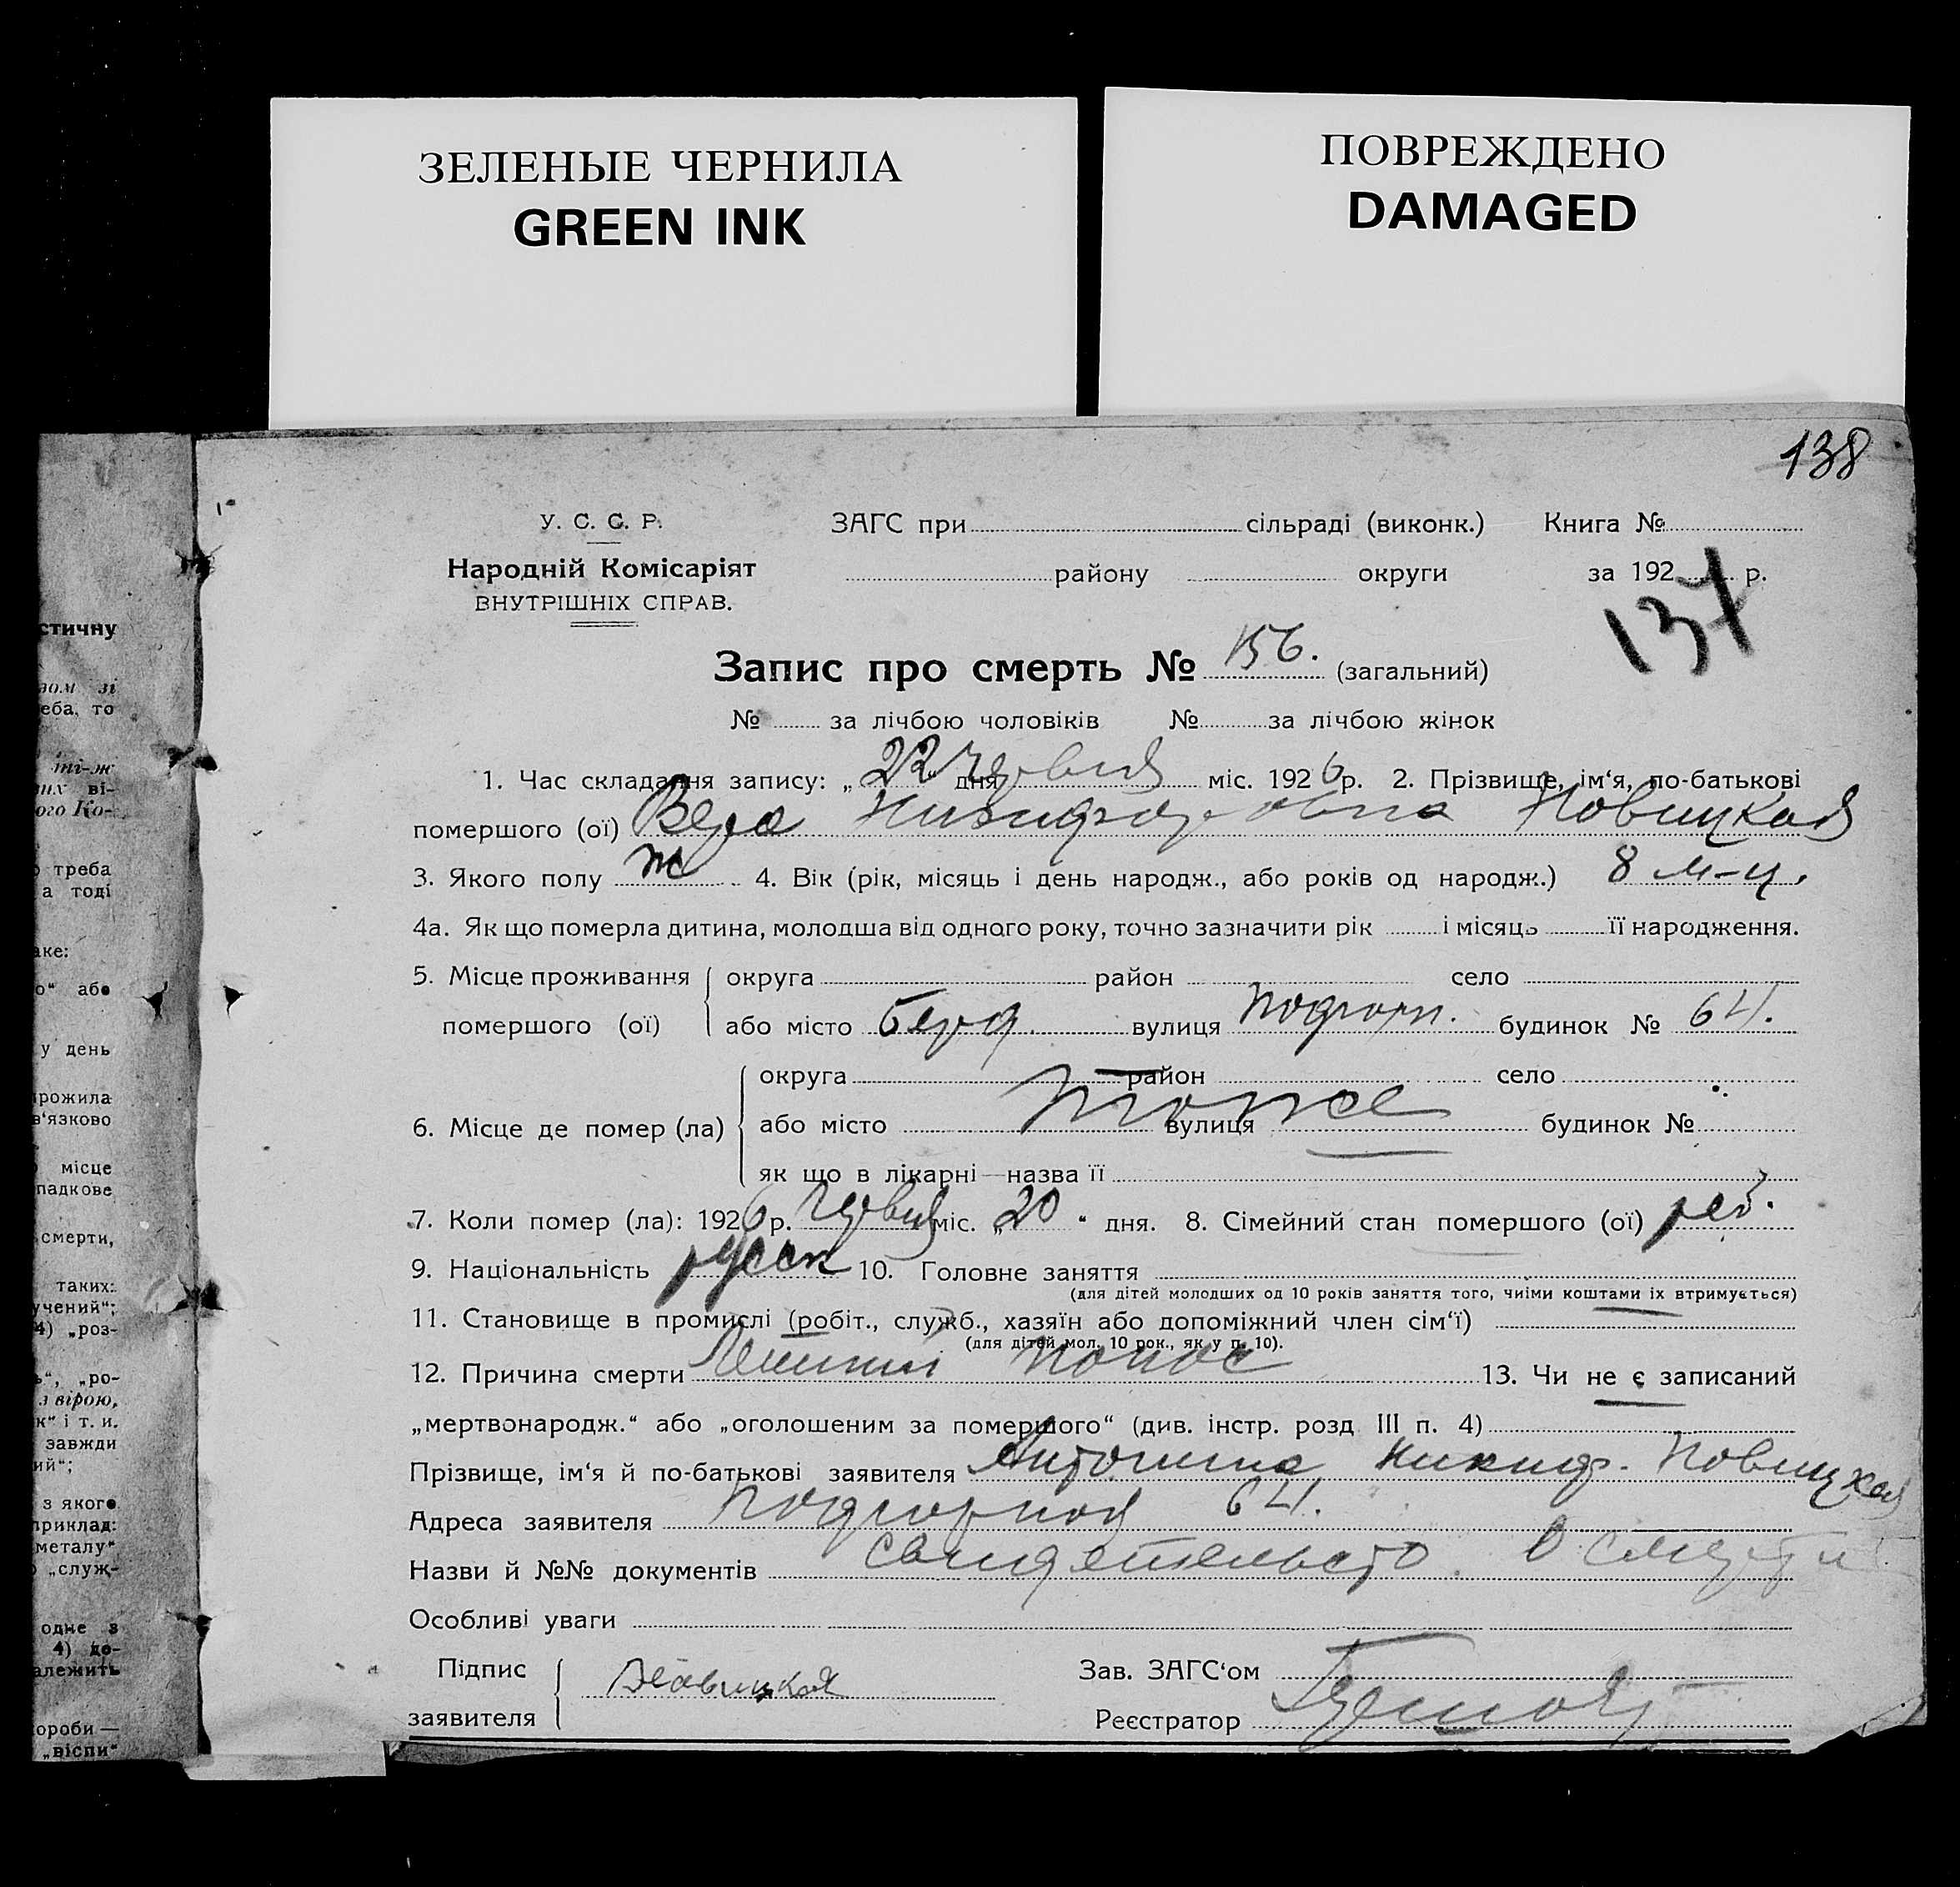 ЗЕЛЕНЫЕ ЧЕРНИЛА
GREEN INK
ПОВРЕЖДЕНО
DAMAGED
138
У. С. С. Р.
Народній Комісаріят
ВНУТРІШНІХ СПРАВ.
ЗАГС при сільраді (виконк.) Книга №
району округи за 192 р.
137
Запис про смерть № 156. (загальний)
№ за лічбою чоловіків № за лічбою жінок
1. Час складання запису: „22“ дня червня міс. 1926 р. 2. Прізвище, ім‘я, по-батькові
помершого (ої) Вера Никифоровна Новицкая
3. Якого полу ж 4. Вік (рік, місяць і день народж., або років од народж.) 8 м-ц.
4а. Як що померла дитина, молодша від одного року, точно зазначити рік і місяць її народження.
5. Місце проживання помершого (ої) округа район село
або місто Берд. вулиця Подгорн. будинок № 64.
6. Місце де помер (ла) округа район село
або місто вулиця будинок №
тоже
як що в лікарні—назва її
7. Коли помер (ла): 1926 р. червня міс. „20“ дня. 8. Сімейний стан помершого (ої) реб.
9. Національність русск 10. Головне заняття
(для дітей молодших од 10 років заняття того, чиїми коштами їх втримується)
11. Становище в промислі (робіт., служб., хазяїн або допоміжний член сім‘ї)
(для дітей мол. 10 рок., як у п. 10).
12. Причина смерти Летний понос 13. Чи не є записаний
„мертвонародж.“ або „оголошеним за помершого“ (див. інстр. розд III п. 4)
Прізвище, ім‘я й по-батькові заявителя Антонина Никиф. Новицкая
Адреса заявителя Подгорная 64.
Назви й №№ документів свидетельсто о смерти
Особливі уваги
Підпис заявителя Новицкая
Зав. ЗАГС‘ом
Реєстратор
стичну
зом зі
еба, то
ті-ж
их ві-
ого Ко-
треба
а тоді
аке:
о“ або
у день
прожила
в‘язково
місце
падкове
смерти,
таких:
учений“;
4) „роз-
ь“, „ро-
з вірою,
к“ і т. и.
завжди
ий“;
з якого
приклад:
металу“
„служ-
одне з
4) до-
алежить
хороби —
„віспи“